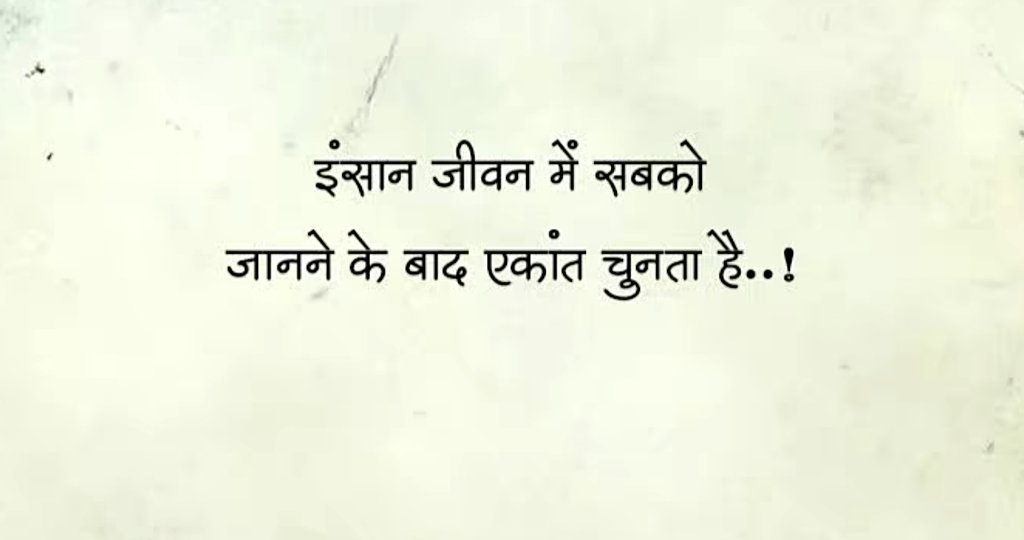 इंसान जीवन में सबको
जानने के बाद एकांत चुनता है..!